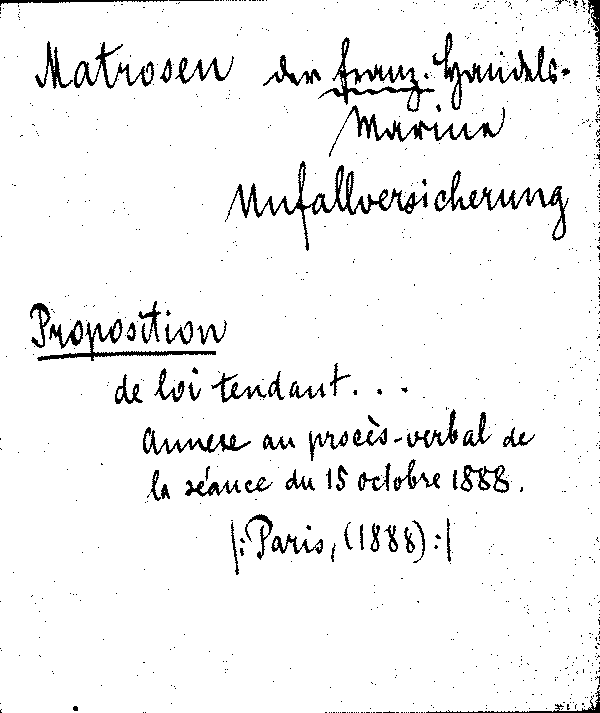 Matrosen der franz. Handels-
Marine
Unfallversicherung
Proposition
de loi tendant...
Annexe au procès-verbal de
la séance du 15 octobre 1888.
|: Paris, (1888) :|